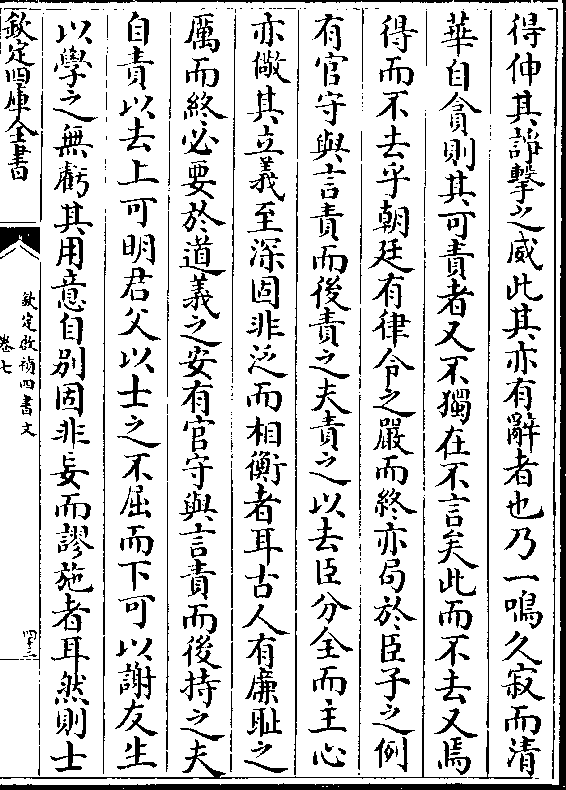 得伸其諍擊之威此其亦有辭者也乃一鳴久寂而清
華自貪則其可責者又不獨在不言矣此而不去又焉
得而不去乎朝廷有律令之嚴而終亦局於臣子之例
有官守與言責而後責之夫責之以去臣分全而主心
亦儆其立義至深固非泛而相衡者耳古人有廉耻之
厲而終必要於道義之安有官守與言責而後持之夫
自責以去上可明君父以士之不屈而下可以謝友生
以學之無虧其用意自別固非妄而謬施者耳然則士
欽定四庫全書
欽定啟禎四書文
卷七
四三